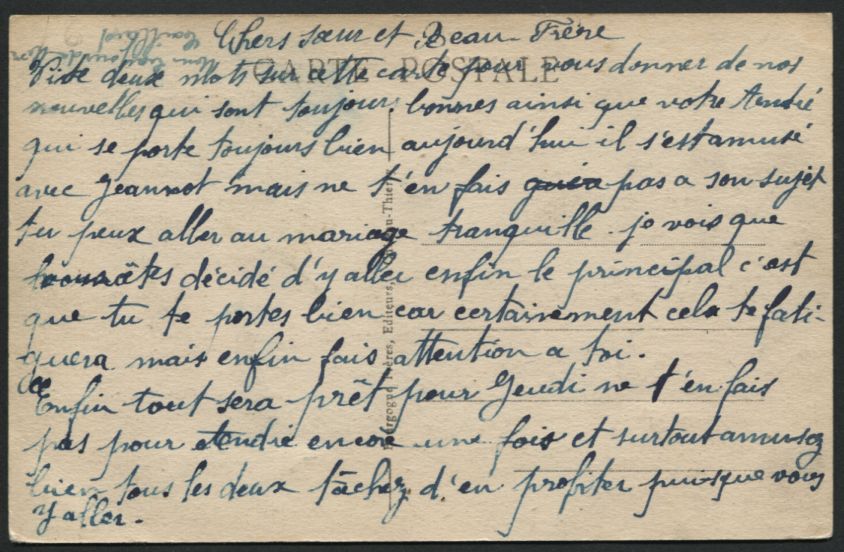 Chers sœur et Beau-Frère
CARTE POSTALE
Vite deux mots sur cette carte pour vous donner de nos
nouvelles qui sont toujours bonnes ainsi que votre André
qui se porte toujours bien aujourd'hui il s'est amusé
avec Jeannot mais ne t'en fais pas a son sujet
tu peux aller au mariage tranquille. je vois que
vous êtes décidé d'y aller enfin le principal c'est
que tu te portes bien car certainement cela te fati-
guera mais enfin fais attention a toi.
Enfin tout sera prêt pour Jeudi ne t'en fais
pas pour André encore une fois et surtout amusez
bien tous les deux tâchez d'en profiter puisque vous
y aller.
Frères, Editeurs,